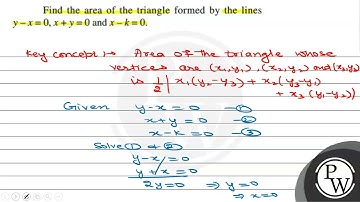 Find the area of the triangle formed by the lines
y – x = 0, x + y = 0 and x – k = 0.
Key concept :- Area of the triangle whose
vertices are (x₁,y₁), (x₂,y₂) and (x₃,y₃)
is 1/2 | x₁(y₂-y₃) + x₂(y₃-y₁)
+ x₃(y₁-y₂)|
Given y-x = 0 —①
x+y = 0 —②
x-k = 0 —③
Solve ① & ②
y-x = 0
y+x = 0
2y=0 ⇒ y=0
⇒ x=0
P
W